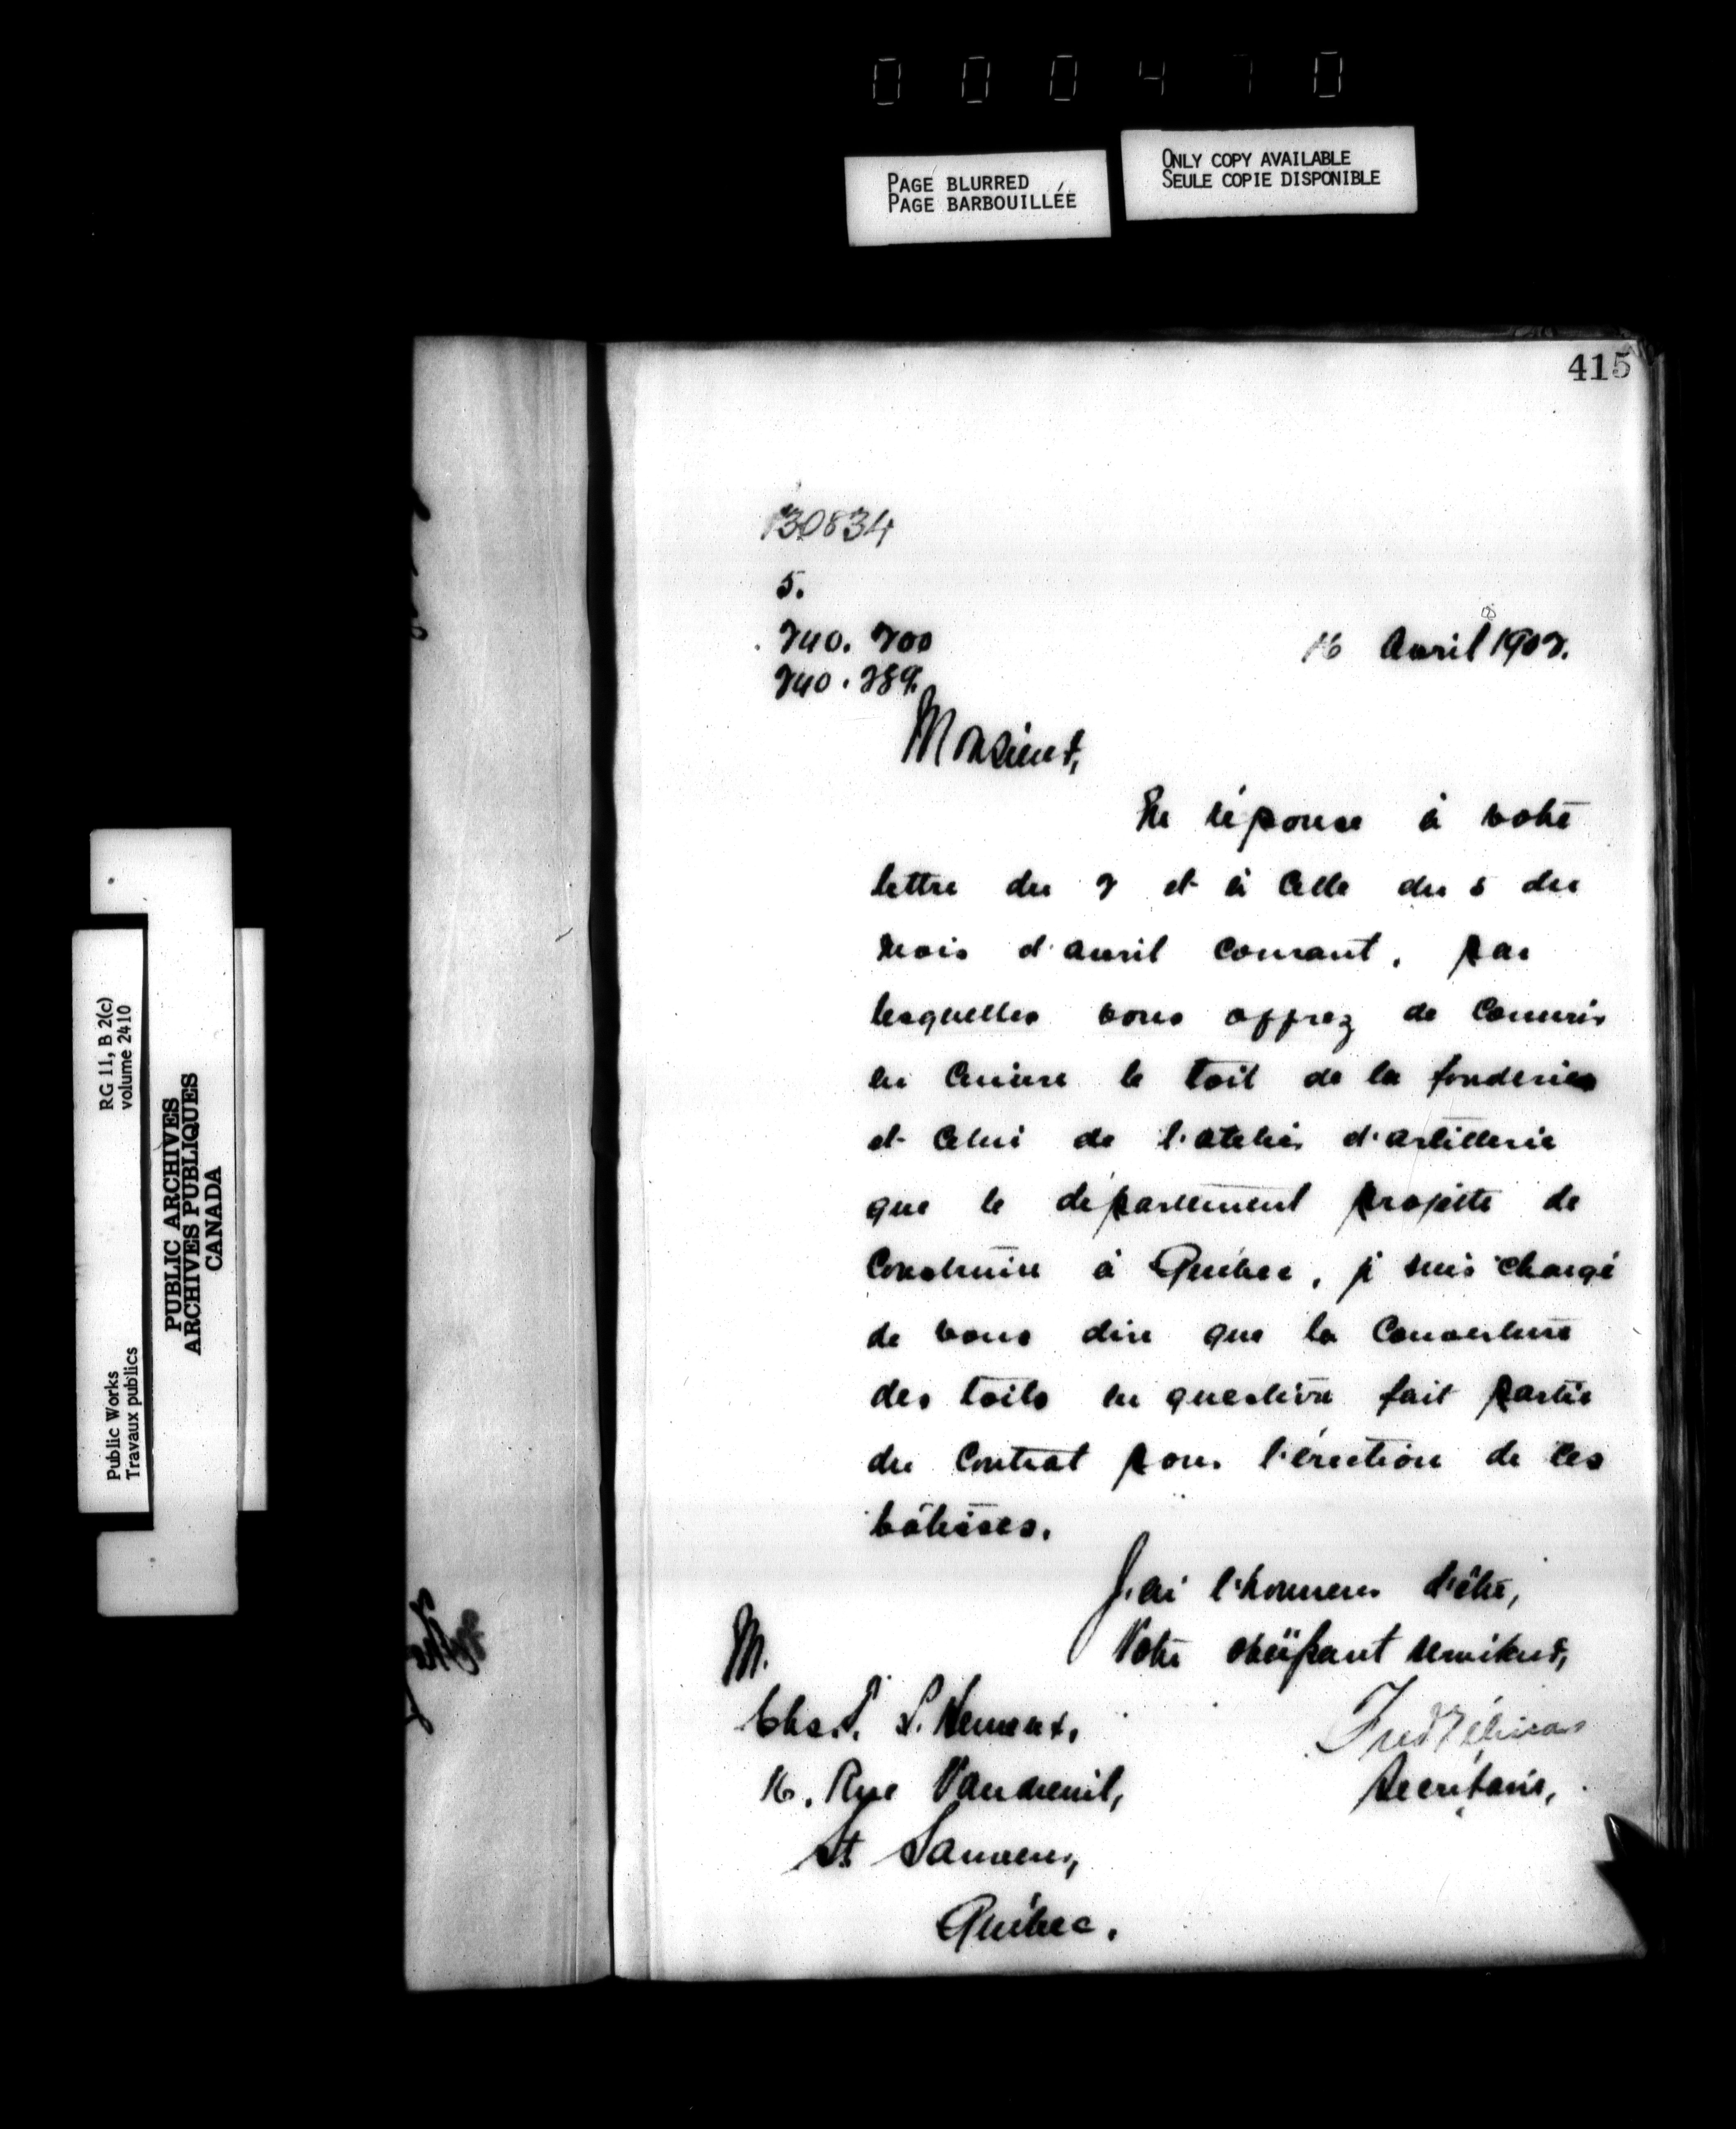 0 0 0 4 7 0
PAGE BLURRED
PAGE BARBOUILLÉE
ONLY COPY AVAILABLE
SEULE COPIE DISPONIBLE
415
130834
5.
240. 200
240. 289.
16 Avril 1902.
Monsieur,
En réponse à votre
lettre du 2 et à celle du 5 du
mois d'avril courant, par
lesquelles vous offrez de couvrir
en cuivre le toit de la fonderie
et celui de l'atelier d'artillerie
que le département projette de
construire à Québec, je suis chargé
de vous dire que la couverture
des toits en question fait partie
du contrat pour l'érection de ces
bâtisses.
J'ai l'honneur d'être,
Votre obéissant serviteur,
Fred Gélinas
Secrétaire,
M.
Chs.
16, Rue Vaudreuil,
St Sauveur,
Québec.
RG 11, B 2(c)
volume 2410
Public Works
Travaux publics
PUBLIC ARCHIVES
ARCHIVES PUBLIQUES
CANADA